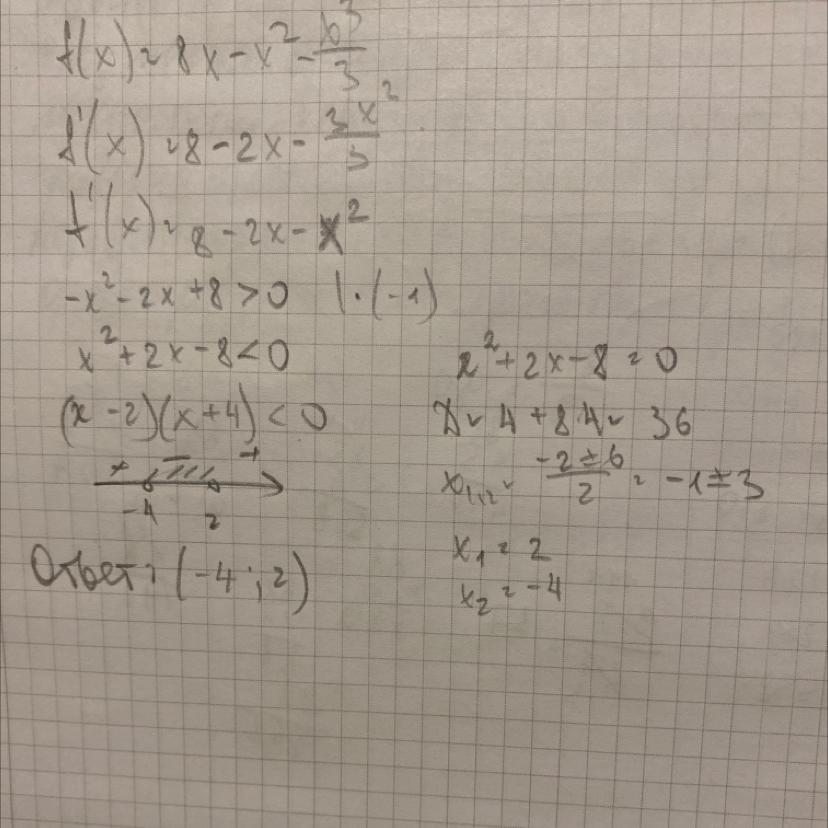 f(x) = 8x - x² - x³/3
f'(x) = 8 - 2x - 3x²/3
f'(x) = 8 - 2x - x²
-x² - 2x + 8 > 0 | · (-1)
x² + 2x - 8 < 0
(x - 2)(x + 4) < 0
+ - +
-4 2
Ответ: (-4; 2)
x² + 2x - 8 = 0
D = 4 + 8·4 = 36
x₁,₂ = (-2 ± 6)/2 = -1 ± 3
x₁ = 2
x₂ = -4